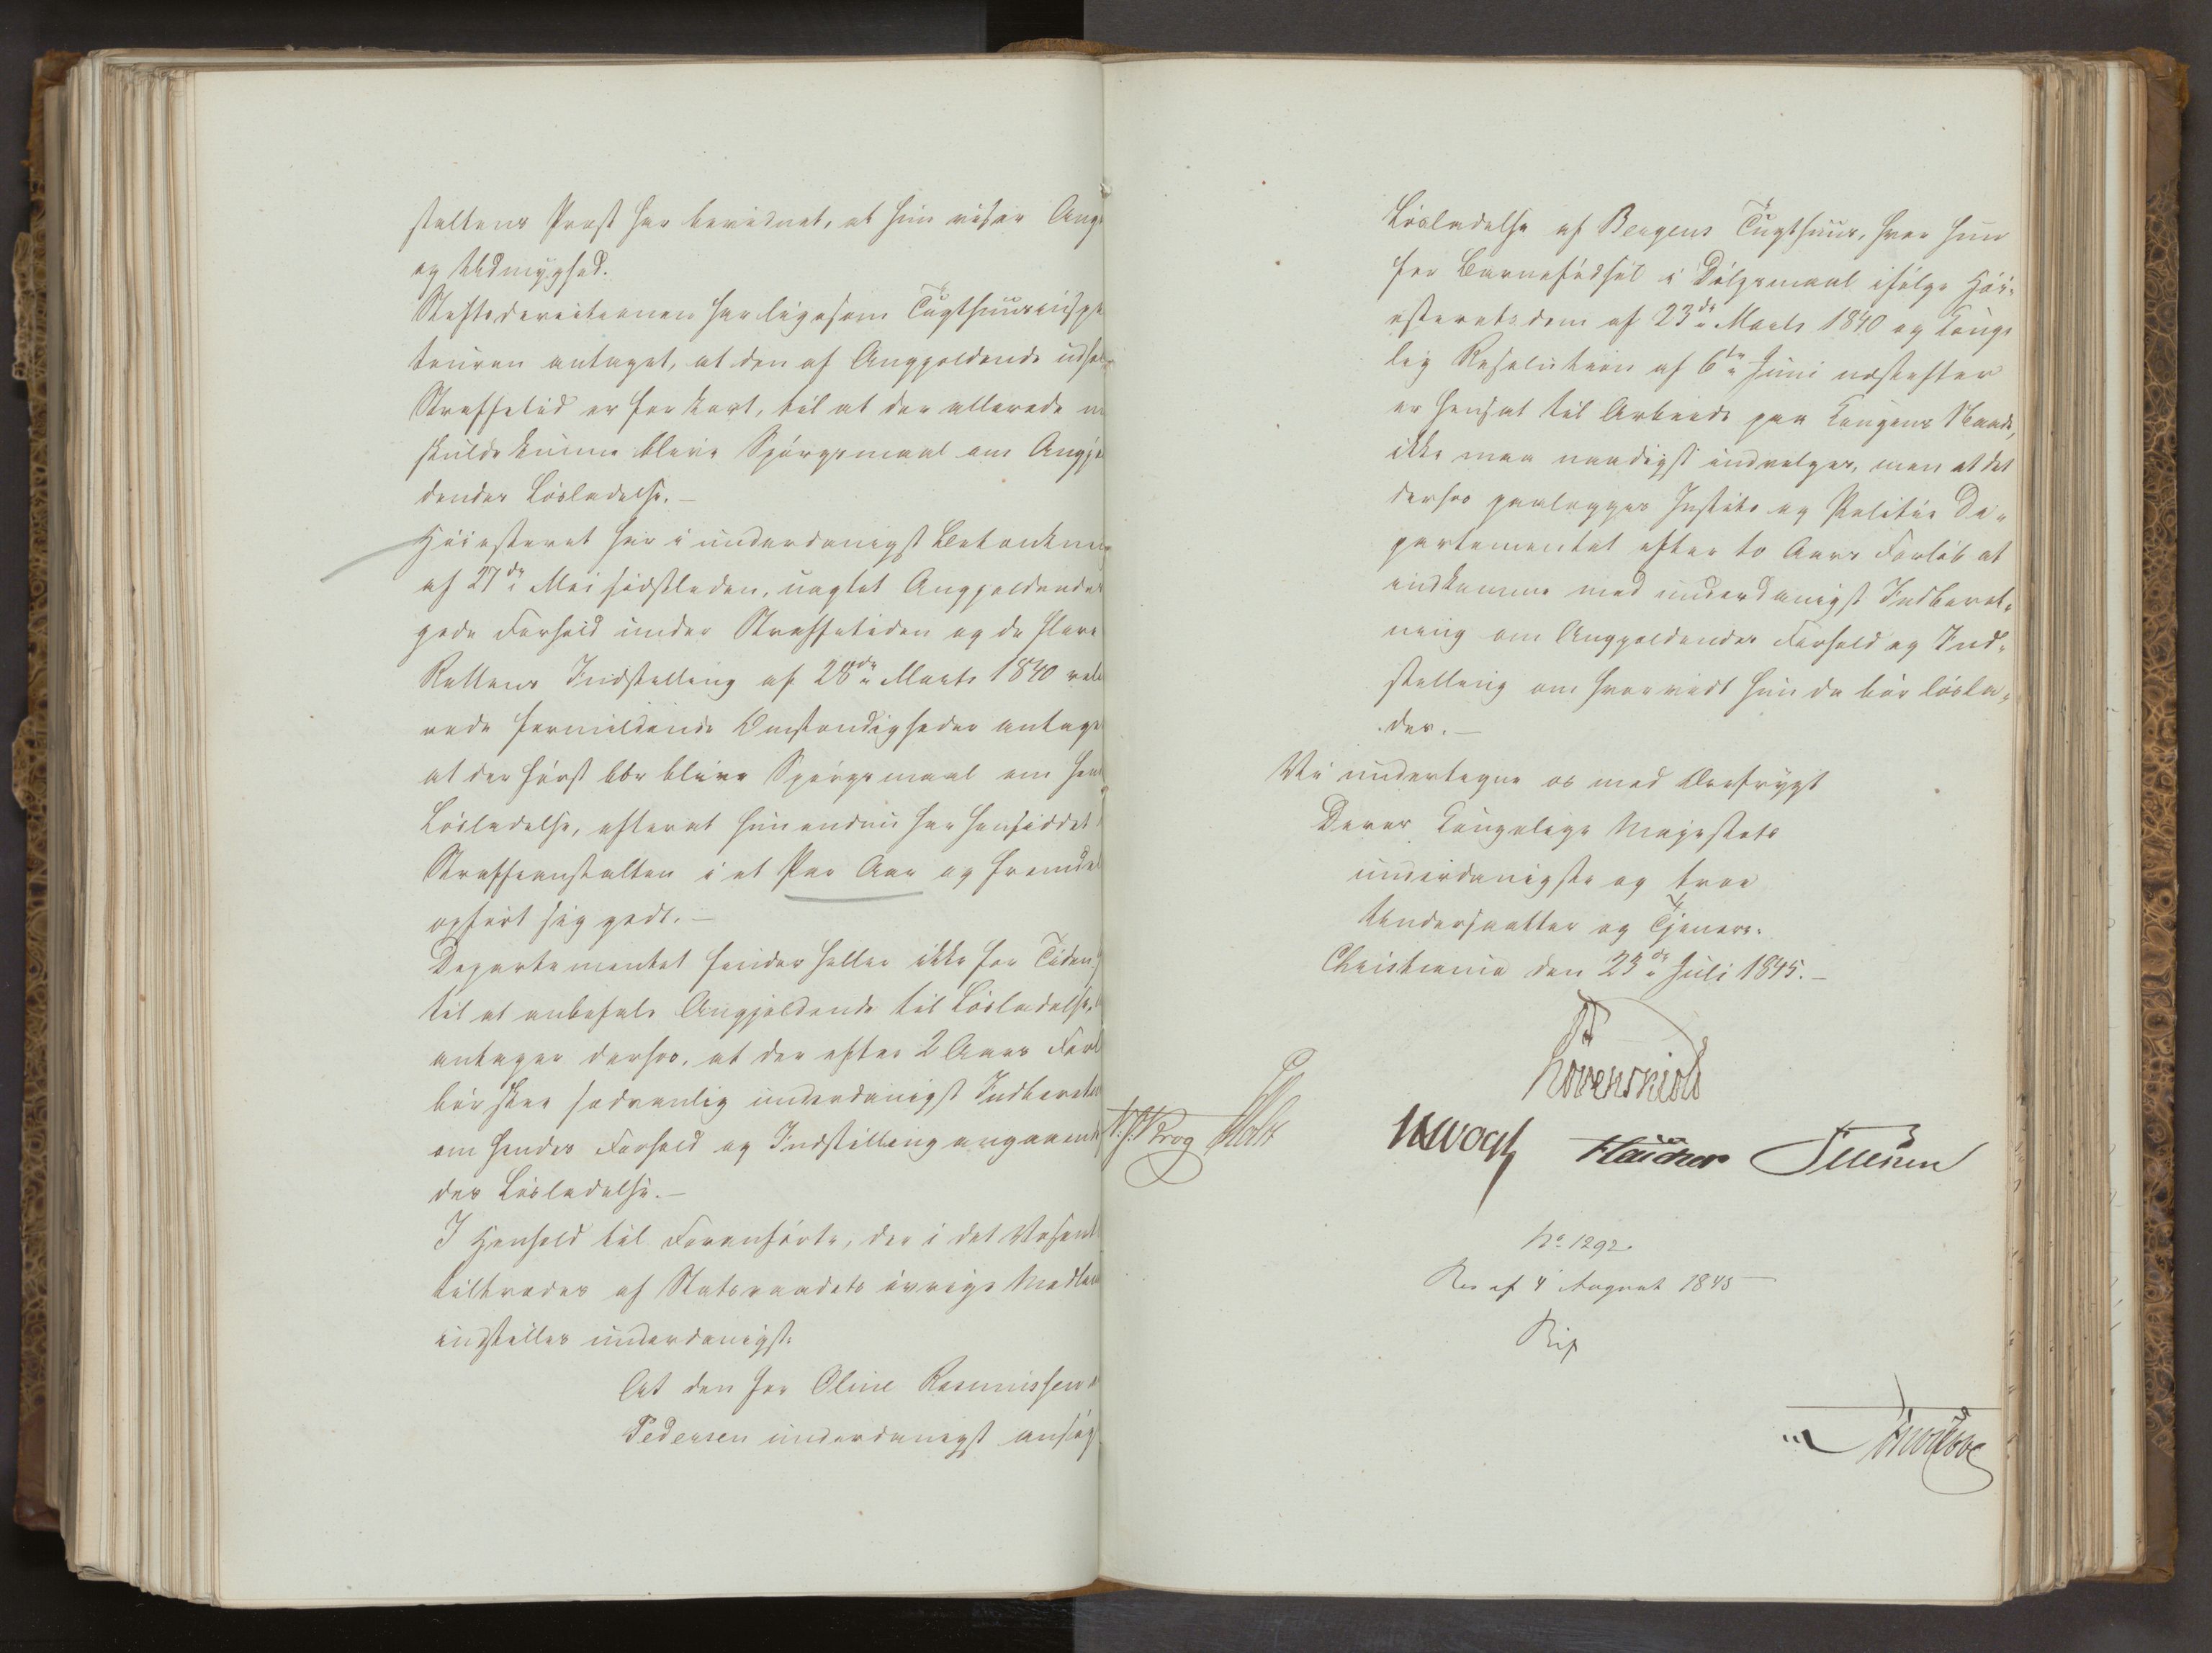 staltens Præst har bevidnet, at hun viser Anger
og Ydmyghed.
Stiftsdirectionen har ligesom Tugthuusinspec
teuren antaget, at den af Anggjeldende udholdte
Straffetid er for kort, til at der allerede nu
skulde kunne blive Spørgsmaal om Anggjel
dendes Løsladelse.—
Høiesteret har i underdanigst Betænkning
af 27de Mai sidstleden, uagtet Anggjeldendes
gode Forhold under Straffetiden og de flere
Rettens Indstilling af 28de Marts 1840 rele
rede formildende Omstændigheder antaget
at der først bør blive Spørgsmaal om hendes
Løsladelse, efterat hun endnu har hensiddet i
Straffeanstalten i et Par Aar og fremdeles
opført sig godt.—
Departementet finder heller ikke for Tiden
til at anbefale Angjeldende til Løsladelse,
antager derfor, at der efter 2 Aars Forløb
bør skee sædvanlig underdanigst Indberetning
om hendes Forhold og Indstilling angaaende
des Løsladelse.—
I Henhold til Foranførte, der i det Væsentlige
tiltrædes af Statsraadets øvrige Medlemmer
indstilles underdanigst:
At den for Oline Rasmussen
Pedersen underdanigst ansøgte
Løsladelse af Bergens Tugthuus, hvor hun
for Barnefødsel i Dølgsmaal ifølge Høi-
esteretsdom af 23de Marts 1840 og Konge
lig Resolution af 6te Juni næstefter
er hensat til Arbeide paa Kongens Naade,
ikke maa naadigst indvilges, men at det
derfor paalægges Justits og Politie De-
partementet efter to Aars Forløb at
indkomme med underdanigst Indberet-
ning om Anggjeldendes Forhold og Ind-
stilling om hvorvidt hun da bør løsla-
des.—
Vi undertegne os med Ærefrygt
Deres Kongelige Majestæts
underdanigste og troe
Undersaatter og Tjenere.
Christiania den 23de Juli 1845.—
Løvenskiold
Krog Holst Vogt
No 1292.
Res af 4 August 1845